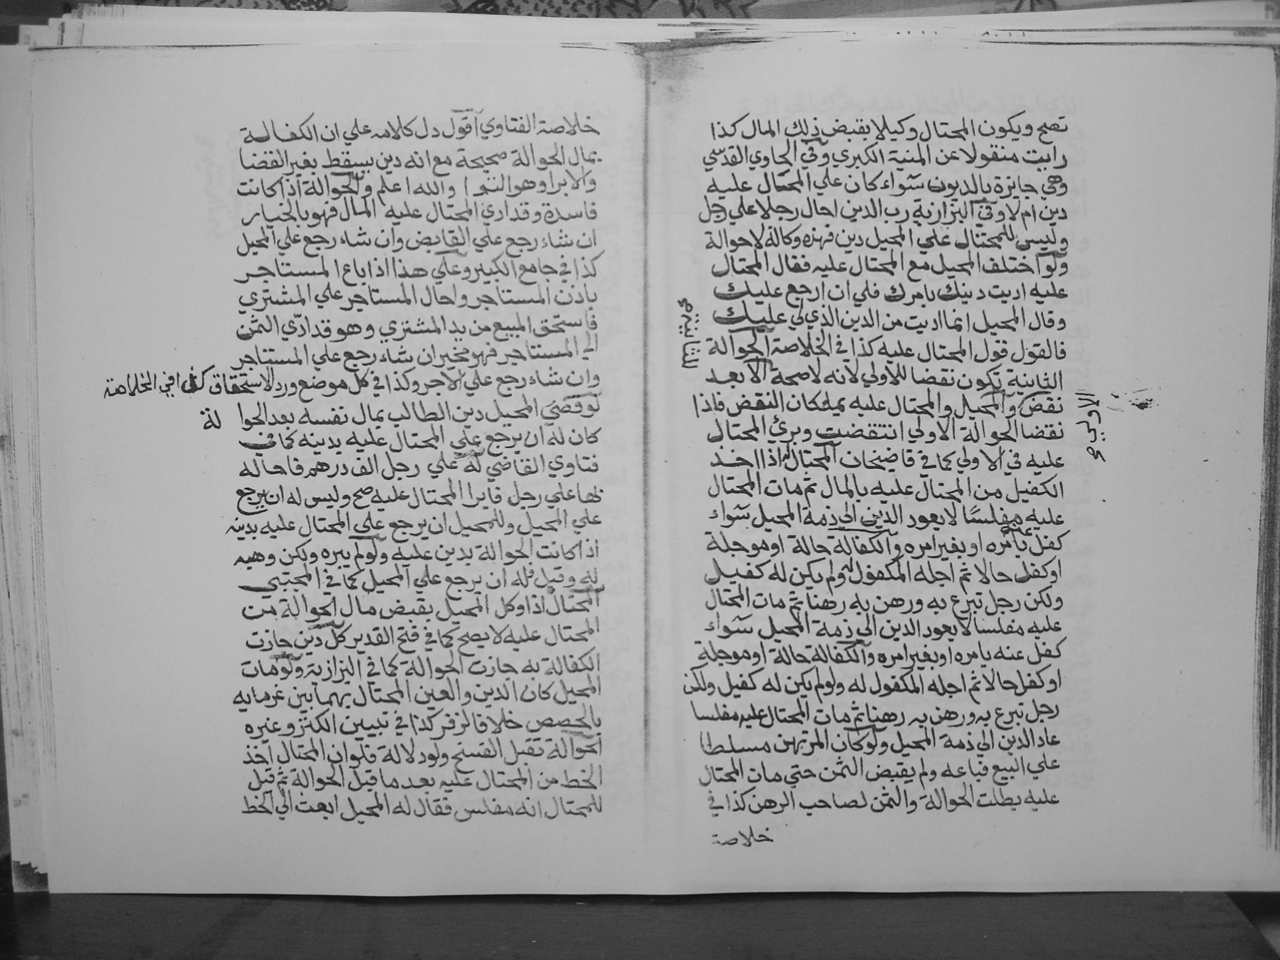 تصح ويكون المحتال وكيلا بقبض ذلك المال كذا
رايت منقولا عن المنية الكبري وفي الحاوي القدسي
وهي جايزة بالديون سواء كان علي المحتال عليه
دين ام لا وفي البزازية رب الدين احال رجلا علي رجل
وليس للمحتال علي المحيل دين فهذه وكالة لا حوالة
ولو اختلف المحيل مع المحتال عليه فقال المحتال
عليه اديت دينك بامرك فلي ان ارجع عليك
وقال المحيل انما اديت من الدين الذي لي عليك
فالقول قول المحتال عليه كذا في الخلاصة الحوالة
الثانية تكون نقضا للاولي لانه لا صحة الا بعد
نقض والمحيل والمحتال عليه يملكان النقض فاذا
نقضا الحوالة الاولي انتقضت وبري المحتال
عليه في الاولي كما في قاضيخان المحتال له اذا اخذ
الكفيل من المحتال عليه بالمال ثم مات المحتال
عليه مفلسا لا يعود الدين الي ذمة المحيل سواء
كفل بامره او بغير امره والكفالة حالة او موجلة
او كفل حالا ثم اجله المكفول له ولم يكن له كفيل
ولكن رجل تبرع به ورهن به رهنا ثم مات المحتال
عليه مفلسا لا يعود الدين الي ذمة المحيل سواء
كفل عنه بامره او بغير امره والكفالة حالة او موجلة
او كفل حالا ثم اجله المكفول له ولو لم يكن له كفيل ولكن
رجل تبرع به ورهن به رهنا ثم مات المحتال عليه مفلسا
عاد الدين الي ذمة المحيل ولو كان المرتهن مسلطا
علي البيع فباعه ولم يقبض الثمن حتي مات المحتال
عليه بطلت الحوالة والثمن لصاحب الرهن كذا في
خلاصة
الاولي صح
خلاصة الفتاوي اقول دل كلامه علي ان الكفالة
بمال الحوالة صحيحة مع انه دين يسقط بغير القضا
والابرا وهو التوا والله اعلم والحوالة اذا كانت
فاسدة وقد ادي المحتال عليه المال فهو بالخيار
ان شاء رجع علي القابض وان شاء رجع علي المحيل
كذا في جامع الكبير وعلي هذا اذا باع المستاجر
باذن المستاجر واحال المستاجر علي المشتري
فاستحق المبيع من يد المشتري وهو قد ادي الثمن
الي المستاجر فهو مخير ان شاء رجع علي المستاجر
وان شاء رجع علي الاجر وكذا في كل موضع ورد الاستحقاق كذا في الخلاصة
لو قضي المحيل دين الطالب بمال نفسه بعد الحوا لة
كان له ان يرجع علي المحتال عليه بدينه كما في
فتاوي القاضي له علي رجل الف درهم فاحاله
بها علي رجل فابرا المحتال عليه صح وليس له ان يرجع
علي المحيل وللمحيل ان يرجع علي المحتال عليه بدينه
اذا كانت الحوالة بدين عليه ولو لم يبره ولكن وهبه
له وقبل فله ان يرجع علي المحيل كما في المجتبي
المحتال اذا وكل المحيل بقبض مال الحوالة من
المحتال عليه لا يصح كما في فتح القدير كل دين جازت
الكفالة به جازت الحوالة كما في البزازية ولو مات
المحيل كان الدين والعين المحتال بهما بين غرمايه
بالحصص خلافا لزفر كذا في تبيين الكنز وغيره
الحوالة تقبل الفسخ ولو دلالة فلو ان المحتال اخذ
الخط من المحتال عليه بعد ما قبل الحوالة ثم قيل
للمحتال انه مفلس فقال له المحيل ابعث الي الخط